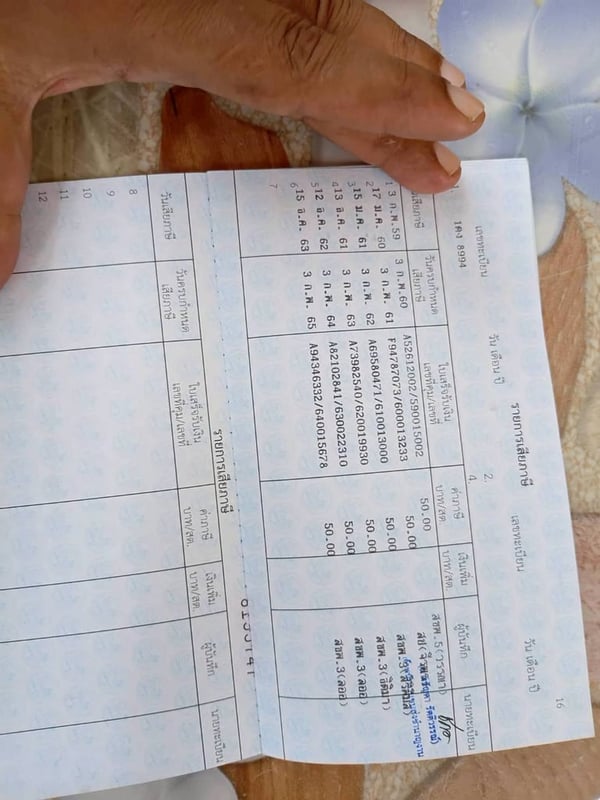 16
รายการเสียภาษี
เลขทะเบียน วัน เดือน ปี เลขทะเบียน วัน เดือน ปี
1คง 8994 2.
4.
วันเสียภาษี วันครบกำหนดเสียภาษี ใบเสร็จรับเงิน เล่มที่คุม/เลขที่ ค่าภาษี บาท/สต. เงินเพิ่ม บาท/สต. ผู้บันทึก นายทะเบียน
1 3 ก.พ.59 3 ก.พ.60 A52612002/590015002 50.00
2 17 ม.ค. 60 3 ก.พ. 61 F94787073/600013233 50.00
3 15 ม.ค. 61 3 ก.พ. 62 A69580471/610013000 50.00
4 13 ธ.ค. 61 3 ก.พ. 63 A73982540/620019930 50.00 สขพ.3
5 12 ธ.ค. 62 3 ก.พ. 64 A82102841/630022310 50.00 สขพ.3(ลออ)
6 15 ธ.ค. 63 3 ก.พ. 65 A94346332/640015678 50.00 สขพ.3(ลออ)
7
รายการเสียภาษี
วันเสียภาษี วันครบกำหนดเสียภาษี ใบเสร็จรับเงิน เล่มที่คุม/เลขที่ ค่าภาษี บาท/สต. เงินเพิ่ม บาท/สต. ผู้บันทึก นายทะเบียน
8
9
10
11
12